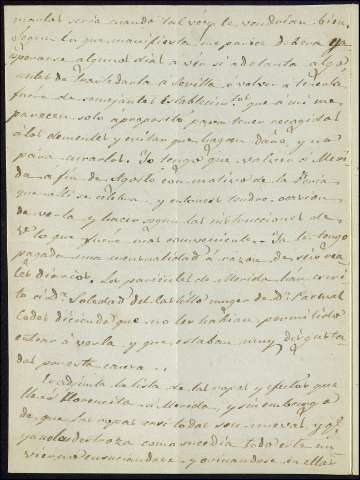 mantas seria cuando tal vez le vendrian bien.
Segun lo que manifiesta me parece debera
esperarse algunos dias a ver si adelanta algo
antes de trasladarla á Sevilla o volver a tenerla
fuera de semejantes Establecimtos que a mi me
parecen solo á proposito para tener recogidos
á los dementes y evitar que hagan daño, y no
para curarlos. Yo tengo que volver á Meri
da a fin de Agosto con motivo de la Feria
que alli se celebra y entonces tendre ocasion
de verla y hacer segun las instrucciones de
V. lo que fuere mas conveniente. Ya le tengo
pagada una mensualidad á razon de seis rea
les diarios. Los parientes de Merida han escri
to a Da. Soledad del Castillo muger de Dn. Pascual
diciendo que no les habian permitido
entrar á verla y que estaban muy disgusta
dos por esta causa...
Es adjunta la lista de las ropas y efectos que
llevó Florencita á Merida, y sin embargo
de que las ropas casi todas son nuevas y
destroza como sucedia todo este in
vierno ensuciandose y orinandose en ellas